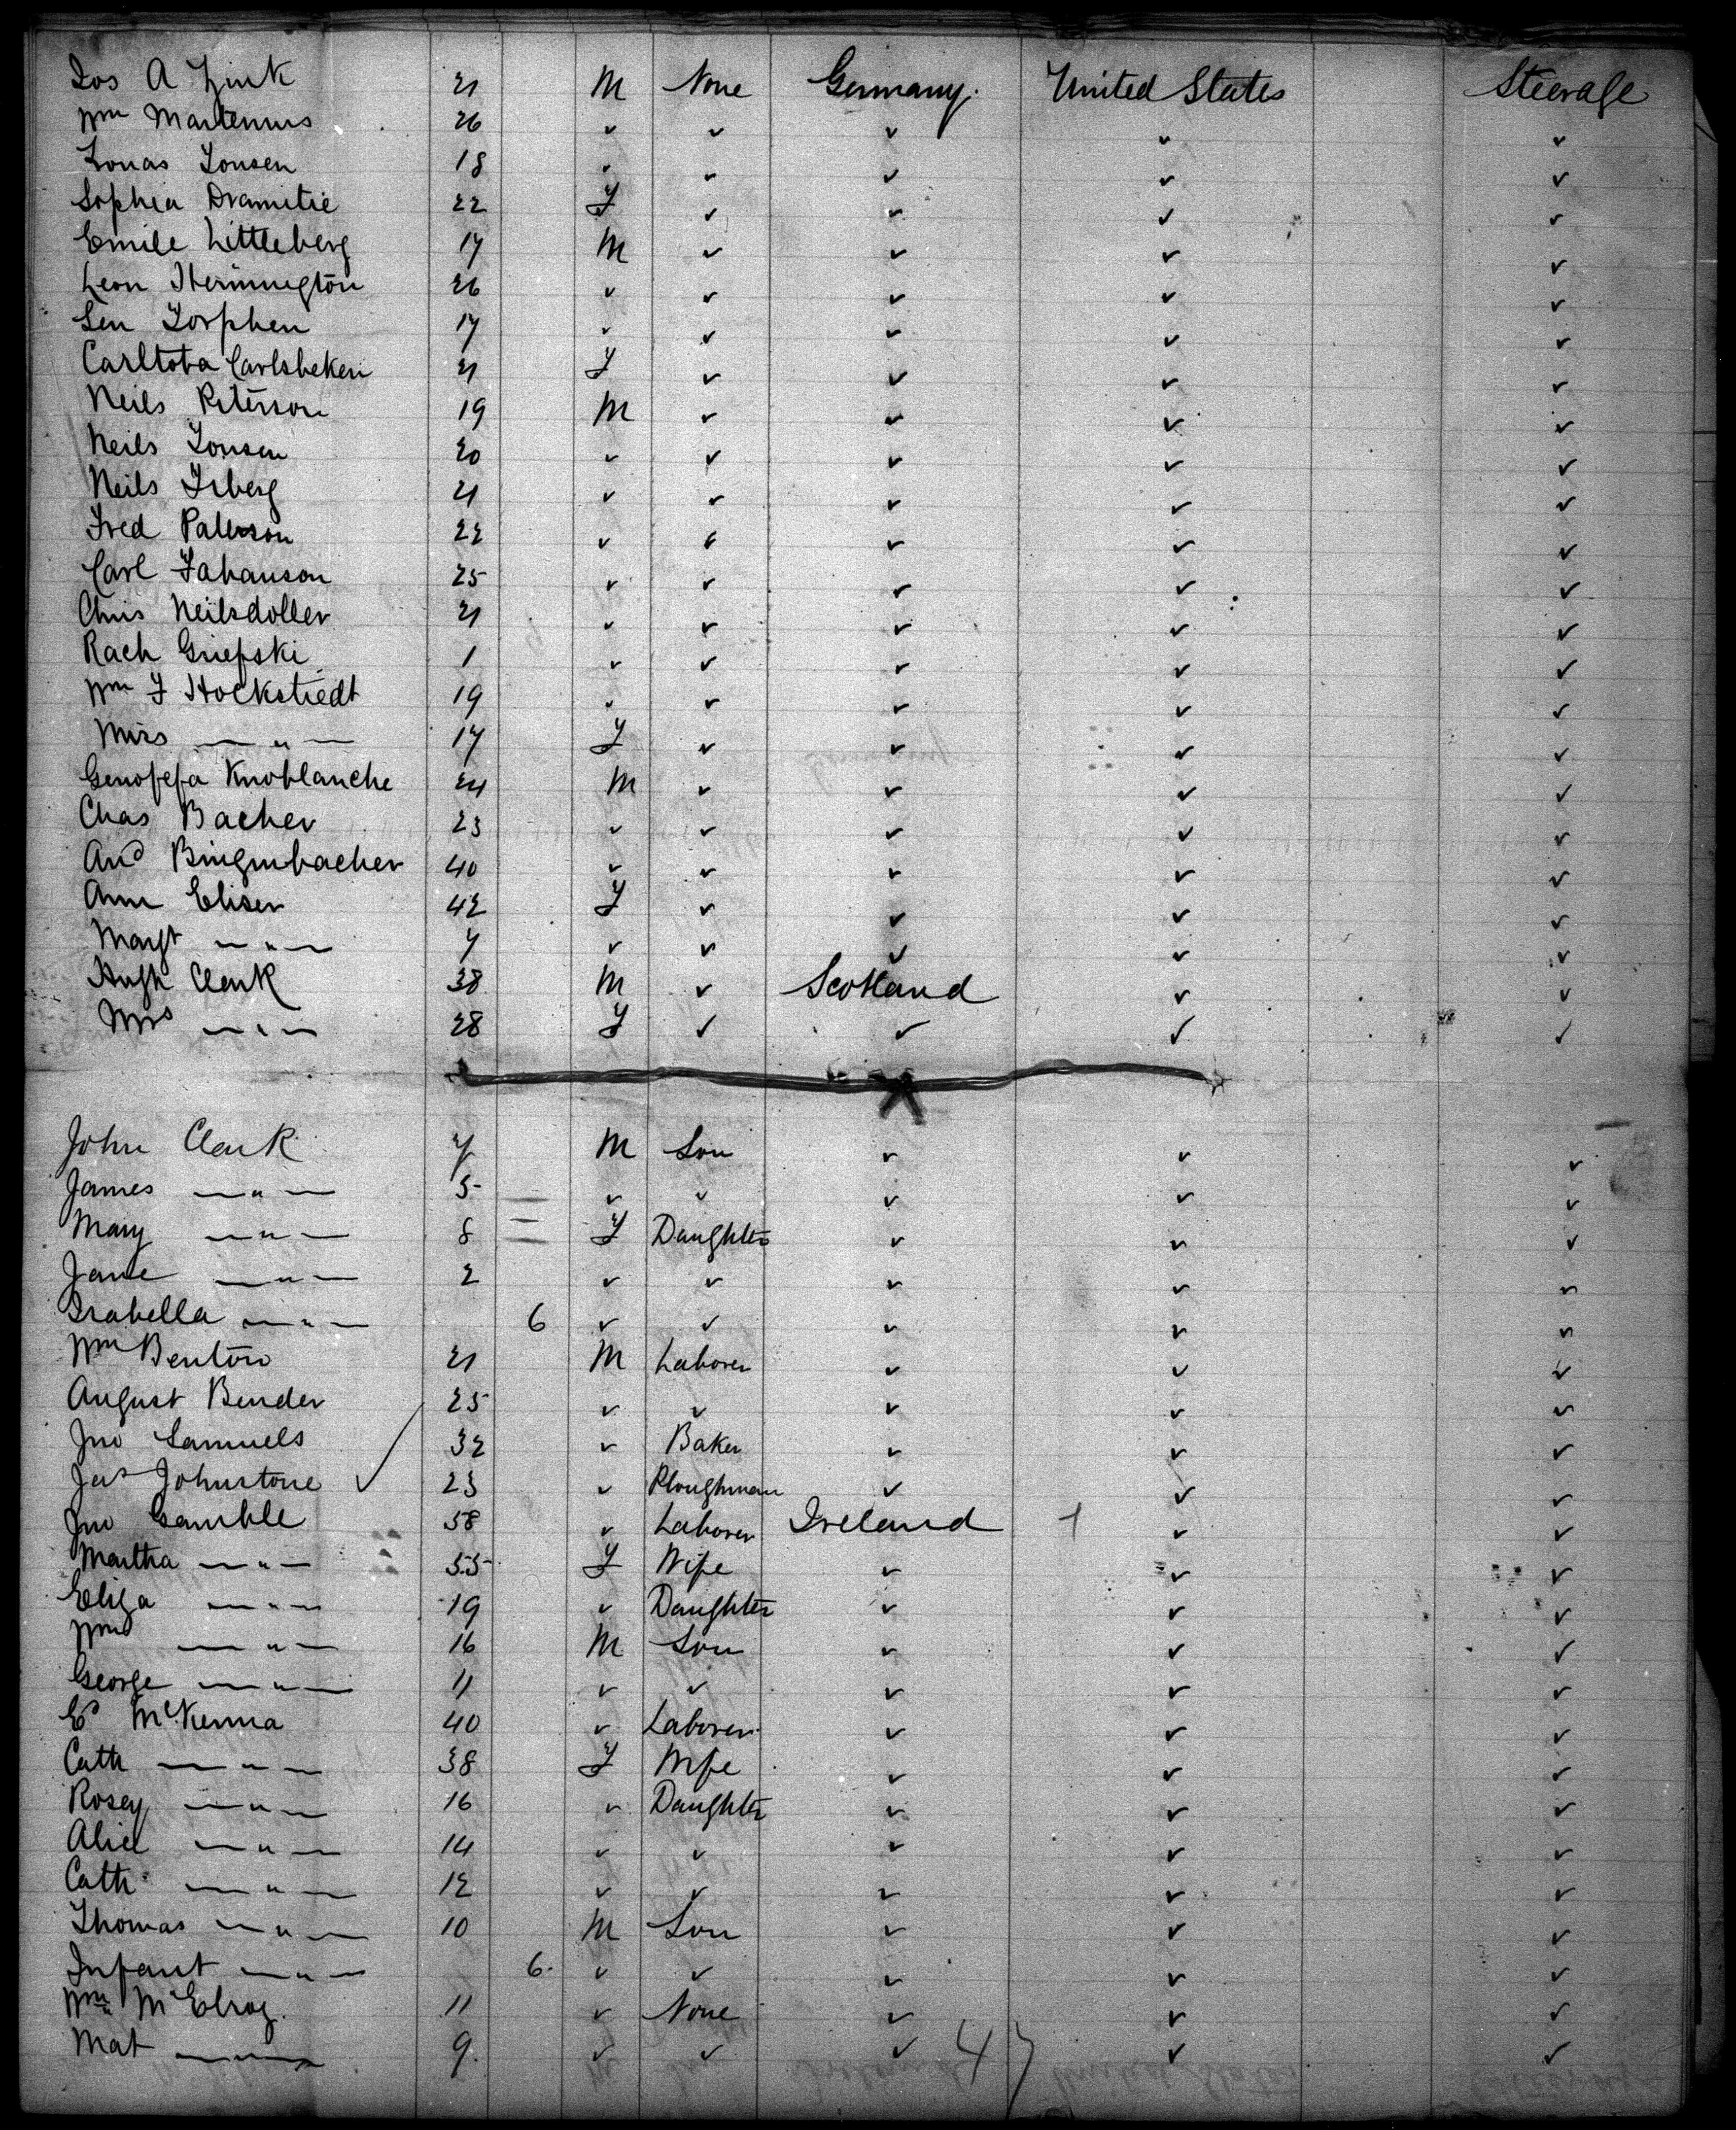 Jos A Link 21 M None Germany. United States Steerage
Wm Martennus 26 ✓ ✓ ✓ ✓ ✓
Jonas Jonsen 18 ✓ ✓ ✓ ✓ ✓
Sophia Dramitie 22 F ✓ ✓ ✓ ✓
Emile Littleberg 17 M ✓ ✓ ✓ ✓
Leon Hermington 26 ✓ ✓ ✓ ✓ ✓
Sen Josphen 17 ✓ ✓ ✓ ✓ ✓
Carltota Carlsbeken 21 F ✓ ✓ ✓ ✓
Neils Peterson 19 M ✓ ✓ ✓ ✓
Neils Jonsen 20 ✓ ✓ ✓ ✓ ✓
Neils Isberg 21 ✓ ✓ ✓ ✓ ✓
Fred Paterson 22 ✓ ✓ ✓ ✓ ✓
Carl Jahanson 25 ✓ ✓ ✓ ✓ ✓
Chris Neilsdoller 21 ✓ ✓ ✓ ✓ ✓
Rach Griefski 1 ✓ ✓ ✓ ✓ ✓
Wm F Hockstiedt 19 ✓ ✓ ✓ ✓ ✓
Mirs — " — 17 F ✓ ✓ ✓ ✓
Genofefa Knoblanche 24 M ✓ ✓ ✓ ✓
Chas Bacher 23 ✓ ✓ ✓ ✓ ✓
And Bingmbacher 40 ✓ ✓ ✓ ✓ ✓
Ann Eliser 42 F ✓ ✓ ✓ ✓
Margt — " — 7 ✓ ✓ ✓ ✓ ✓
Hugh Clark 38 M ✓ Scotland ✓ ✓
Mrs — " — 28 F ✓ ✓ ✓ ✓
John Clark 7 M Son ✓ ✓ ✓
James — " — 5 ✓ ✓ ✓ ✓ ✓
Mary — " — 8 F Daughter ✓ ✓ ✓
Jane — " — 2 ✓ ✓ ✓ ✓ ✓
Isabella — " — 6 ✓ ✓ ✓ ✓ ✓
Wm Benton 21 M Laborer ✓ ✓ ✓
August Bender 25 ✓ ✓ ✓ ✓ ✓
Jno Samuels 32 ✓ Baker ✓ ✓ ✓
Jas Johnstone ✓ 23 ✓ Ploughman ✓ ✓ ✓
Jno Gamble 58 ✓ Laborer Ireland ✓ ✓
Martha — " — 55 F Wife ✓ ✓ ✓
Eliza — " — 19 ✓ Daughter ✓ ✓ ✓
Wm — " — 16 M Son ✓ ✓ ✓
George — " — 11 ✓ ✓ ✓ ✓ ✓
Ed McKenna 40 ✓ Laborer ✓ ✓ ✓
Cath — " — 38 F Wife ✓ ✓ ✓
Rosey — " — 16 ✓ Daughter ✓ ✓ ✓
Alice — " — 14 ✓ ✓ ✓ ✓ ✓
Cath — " — 12 ✓ ✓ ✓ ✓ ✓
Thomas — " — 10 M Son ✓ ✓ ✓
Infant — " — 6. ✓ ✓ ✓ ✓ ✓
Wm McElroy. 11 ✓ None ✓ ✓ ✓
Mat — " — 9. ✓ ✓ ✓ ✓ ✓
47